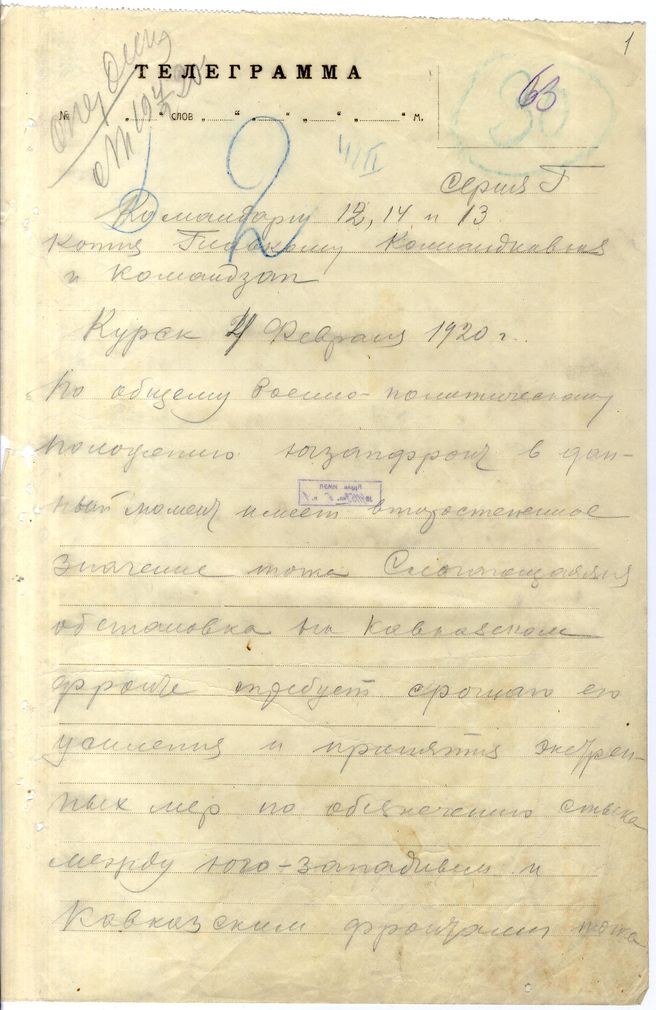 1
ТЕЛЕГРАММА
63
30
№ „ “ слов „ “ „ “ „ “ „ “ м.
2
Серия Г
Командарм 12, 14 и 13
Копия Главкому Командкавказ
и Командзап
Курск 4 Февраля 1920 г.
По общему военно-политическому
положению югзапфронт в дан-
ный момент имеет второстепенное
значение точка Слагающаяся
обстановка на Кавказском
фронте требует срочнаго его
усиления и принятия экстрен-
ных мер по обеспечению стыка
между юго-западным и
Кавказским фронтами точка